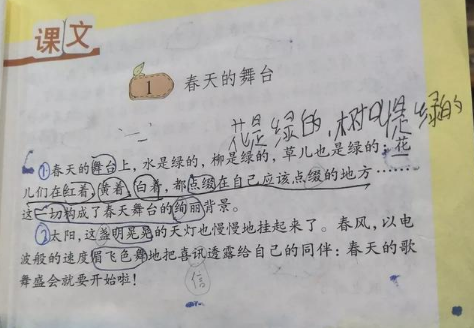 课文
1 春天的舞台
花是绿的,树叫是绿的
①春天的舞台上,水是绿的,柳是绿的,草儿也是绿的;花
儿们在红着,黄着,白着,都点缀在自己应该点缀的地方……
这一切构成了春天舞台的绚丽背景。
②太阳,这盏明晃晃的天灯也慢慢地挂起来了。春风,以电
波般的速度眉飞色舞地把喜讯透露给自己的同伴:春天的歌
信
舞盛会就要开始啦!